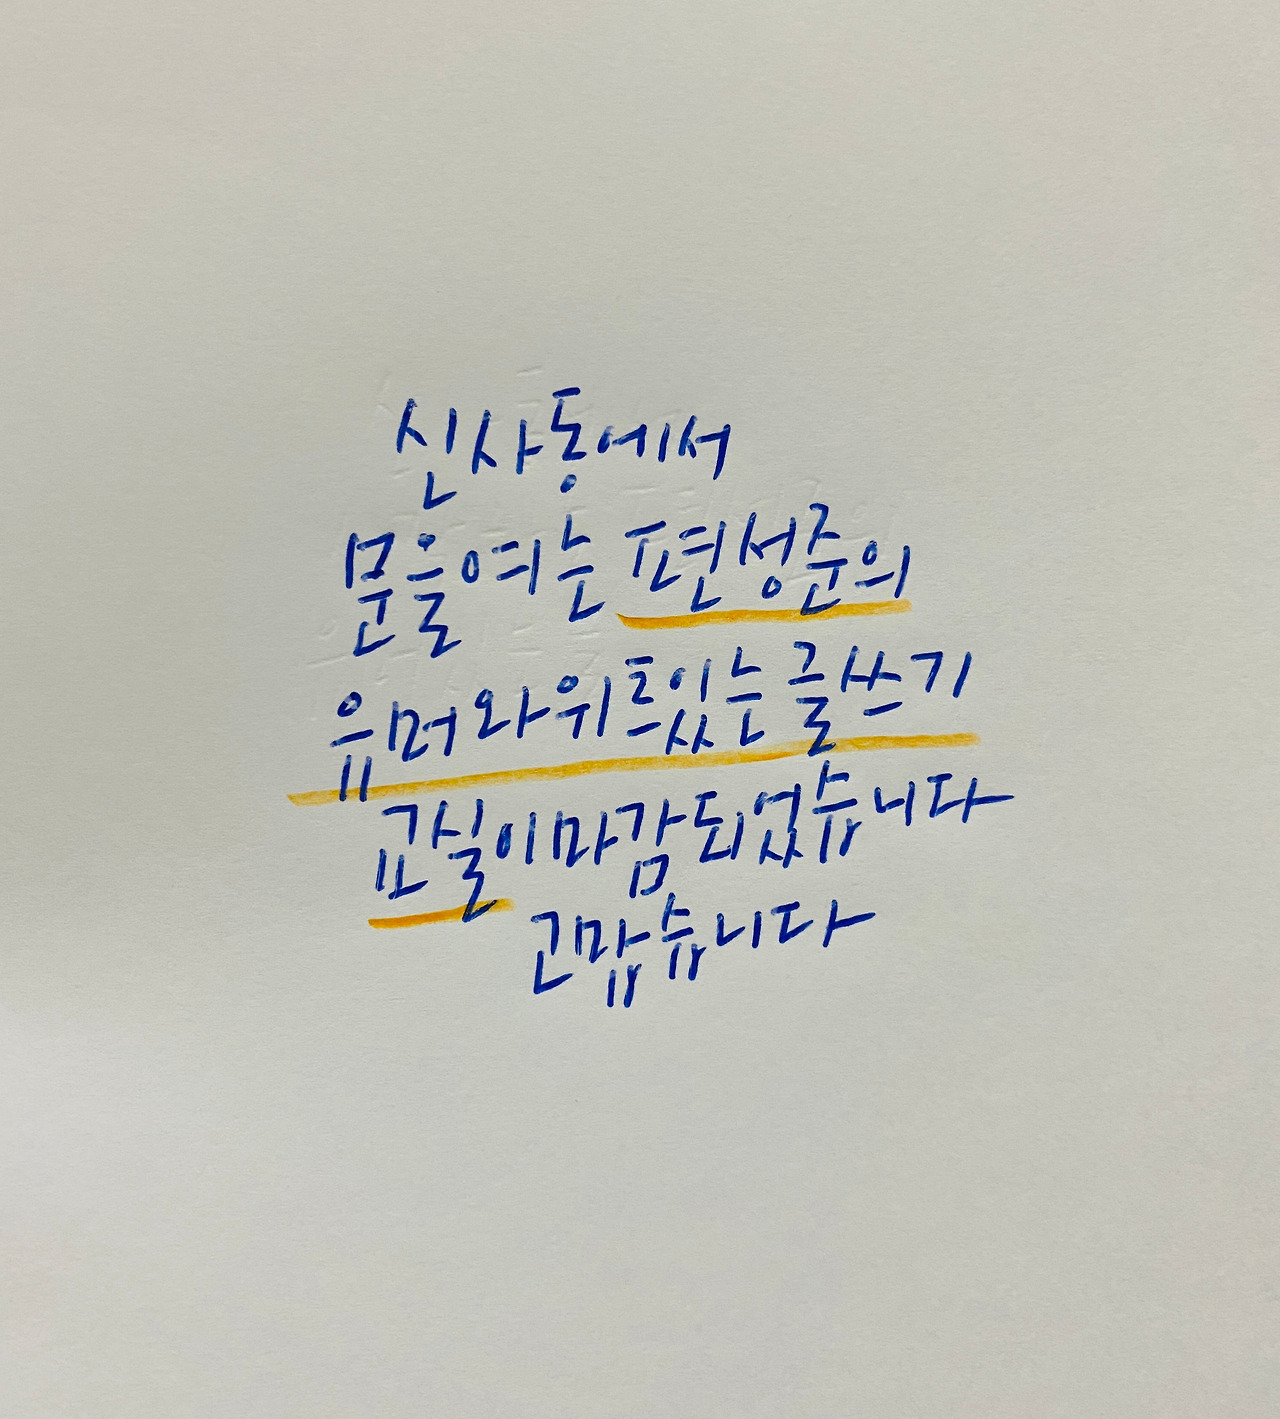 신사동에서
문을 여는 편성준의
유머와 위트있는 글쓰기
교실이 마감되었습니다
고맙습니다